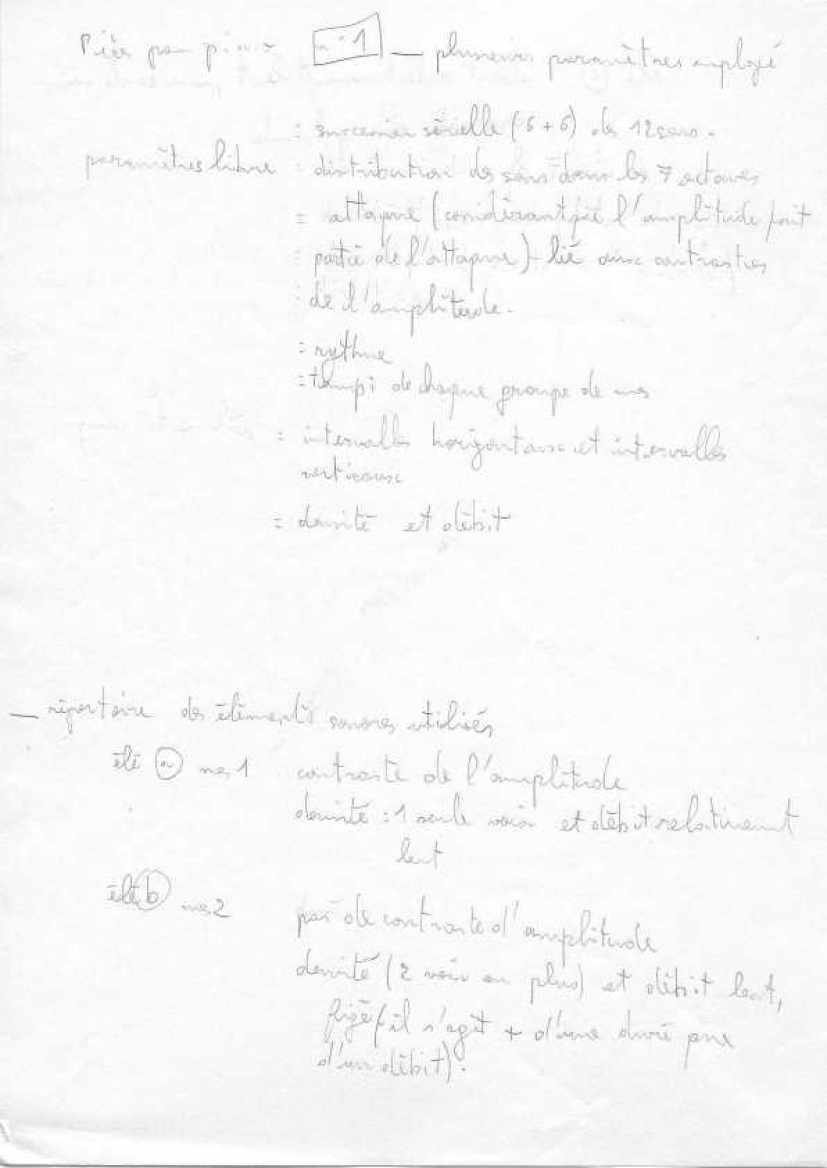 Pièce pour piano n°1 — plusieurs paramètres employé
= succession sérielle (6 + 6) des 12 sons.
paramètres libre = distribution des sons dans les 7 octaves
= attaque (considérant que l'amplitude fait
partie de l'attaque) - lié aux contrastes
de l'amplitude.
= rythme
= tempi de chaque groupe de mes
= intervalles horizontaux et intervalles
verticaux
= densité et débit
— répertoire des éléments sonores utilisés
élé a mes 1 contraste de l'amplitude
densité : 1 seule voix et débit relativement
lent
élé b mes 2
pas de contraste d'amplitude
densité (2 voix ou plus) et débit lent,
figé (il s'agit + d'une durée que
d'un débit).